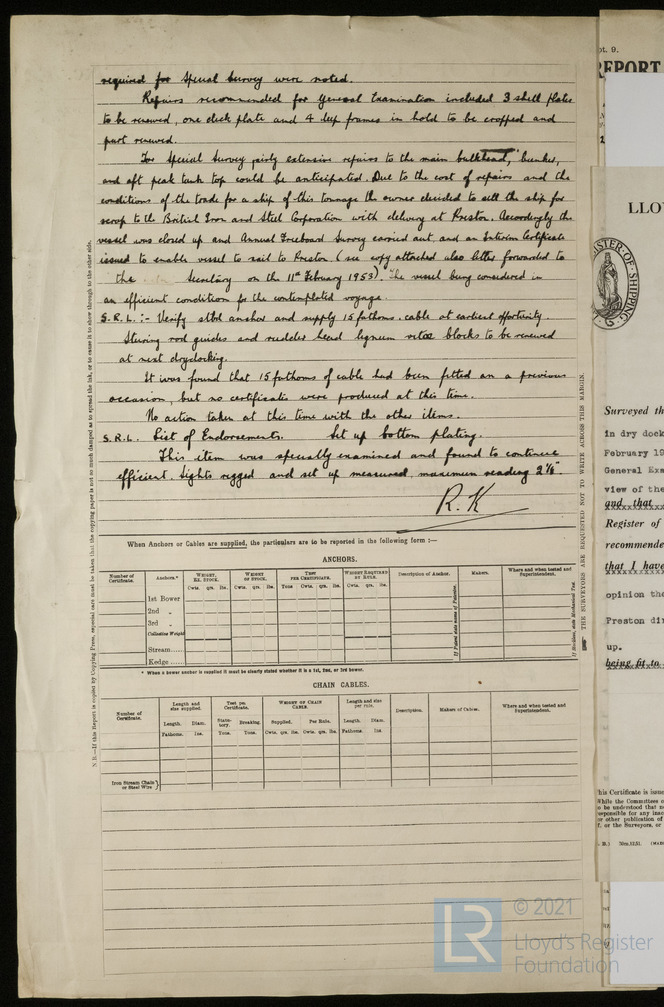 required for Special Survey were noted.
Repairs recommended for General Examination included 3 shell plates
to be renewed, one deck plate and 4 deep frames in hold to be cropped and
part renewed.
For Special Survey fairly extensive repairs to the main bulkhead, bunker,
and aft peak tank top could be anticipated. Due to the cost of repairs and the
conditions of the trade for a ship of this tonnage the owner decided to sell the ship for
scrap to the British Iron and Steel Corporation with delivery at Preston. Accordingly the
vessel was closed up and Annual Freeboard Survey carried out, and an Interim Certificate
issued to enable vessel to sail to Preston (see copy attached also letter forwarded to
the Secretary on the 11th February 1953). The vessel being considered in
an efficient condition for the contemplated voyage.
S.R.L. :- Verify stbd anchor and supply 15 fathoms. cable at earliest opportunity.
Steering rod guides and rudder head lignum vitae blocks to be renewed
at next drydocking.
It was found that 15 fathoms of cable had been fitted on a previous
occasion, but no certificates were produced at this time.
No action taken at this time with the other items.
S.R.L. List of Endorsements. Set up bottom plating.
This item was specially examined and found to continue
efficient. Sights rigged and set up measured, maximum reading
R.K
When Anchors or Cables are supplied, the particulars are to be reported in the following form :—
ANCHORS.
Number of Certificate. Anchors.* WEIGHT, EX. STOCK. WEIGHT OF STOCK. TEST PER CERTIFICATE. WEIGHT REQUIRED BY RULE. Description of Anchor. Makers. Where and when tested and Superintendent.
Cwts. qrs. lbs. Cwts. qrs. lbs. Tons Cwt. qrs. lbs. Cwts. qrs. lbs.
1st Bower
2nd „
3rd „
Collective Weight
Stream......
Kedge......
* When a bower anchor is supplied it must be clearly stated whether it is a 1st, 2nd, or 3rd bower.
CHAIN CABLES.
Number of Certificate. Length and size supplied. Test per Certificate. WEIGHT OF CHAIN CABLE. Length and size per rule. Description. Makers of Cables. Where and when tested and Superintendent.
Length. Diam. Statutory. Breaking. Supplied. Per Rule. Length. Diam.
Fathoms. Ins. Tons. Tons. Cwts. qrs. lbs. Cwts. qrs. lbs. Fathoms Ins.
Iron Stream Chain or Steel Wire
N.B.—If this Report is copied by Copying Press, especial care must be taken that the copying paper is not so much damped as to spread the ink, or to cause it to show through to the other side.
THE SURVEYORS ARE REQUESTED NOT TO WRITE ACROSS THIS MARGIN.
pt. 9.
REPORT
LLO
STER OF SHIPPING
Surveyed th
in dry dock
February 19
General Exa
view of the
and that
Register of
recommende
that I have
opinion the
Preston di
up.
being fit to
his Certificate is issue
While the Committees o
o be understood that ne
esponsible for any inac
r other publication of
f, or the Surveyors, or
LR
© 2021
Lloyd's Register
Foundation